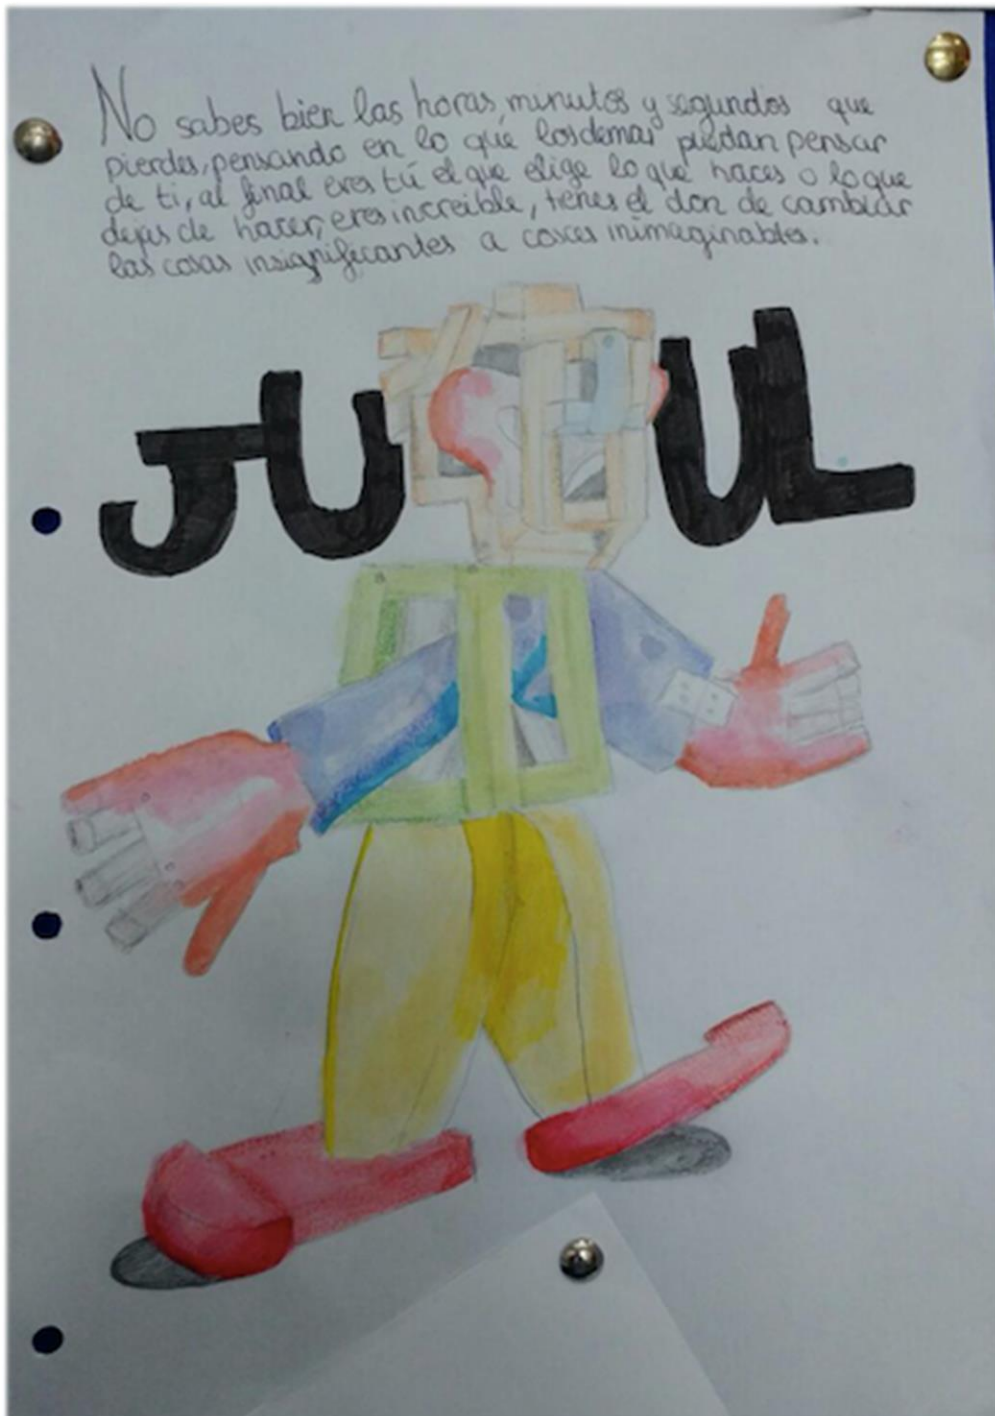 No sabes bien las horas, minutos y segundos que
pierdes, pensando en lo que losdemas puedan pensar
de ti, al final eres tú el que elige lo que haces o lo que
dejes de hacer, eres increible, tienes el don de cambiar
las cosas insignificantes a cosas inimaginables.
JUUL